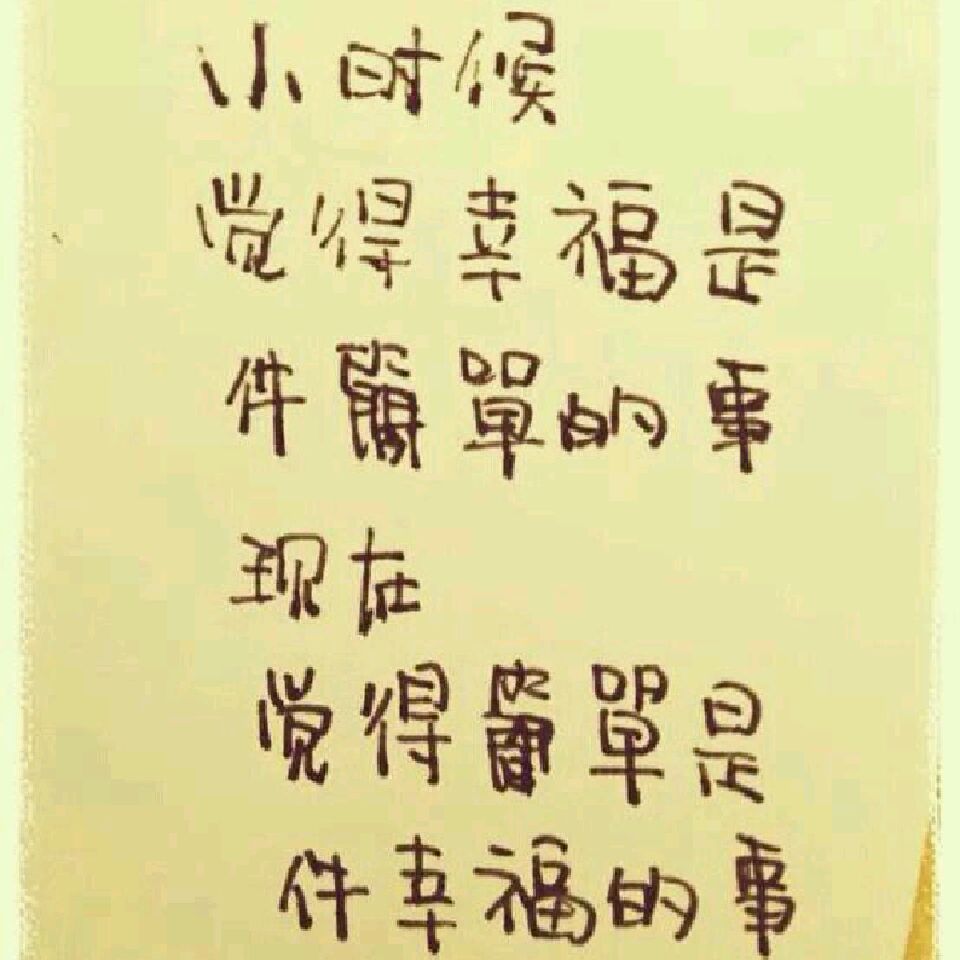 小时候
觉得幸福是
件簡單的事
现在
觉得簡單是
件幸福的事